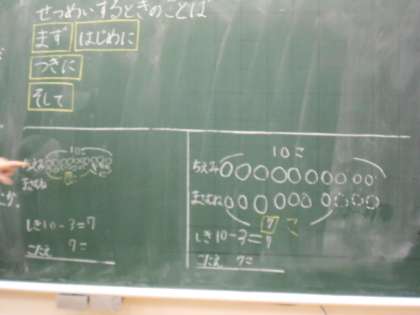 せつめいするときのことば
まず はじめに
つぎに
そして
10こ
ちえみ
まさむね
しき10-3=7
こたえ 7こ
10こ
ちえみ
まさむね
7 こ
しき10-3=7
こたえ 7こ